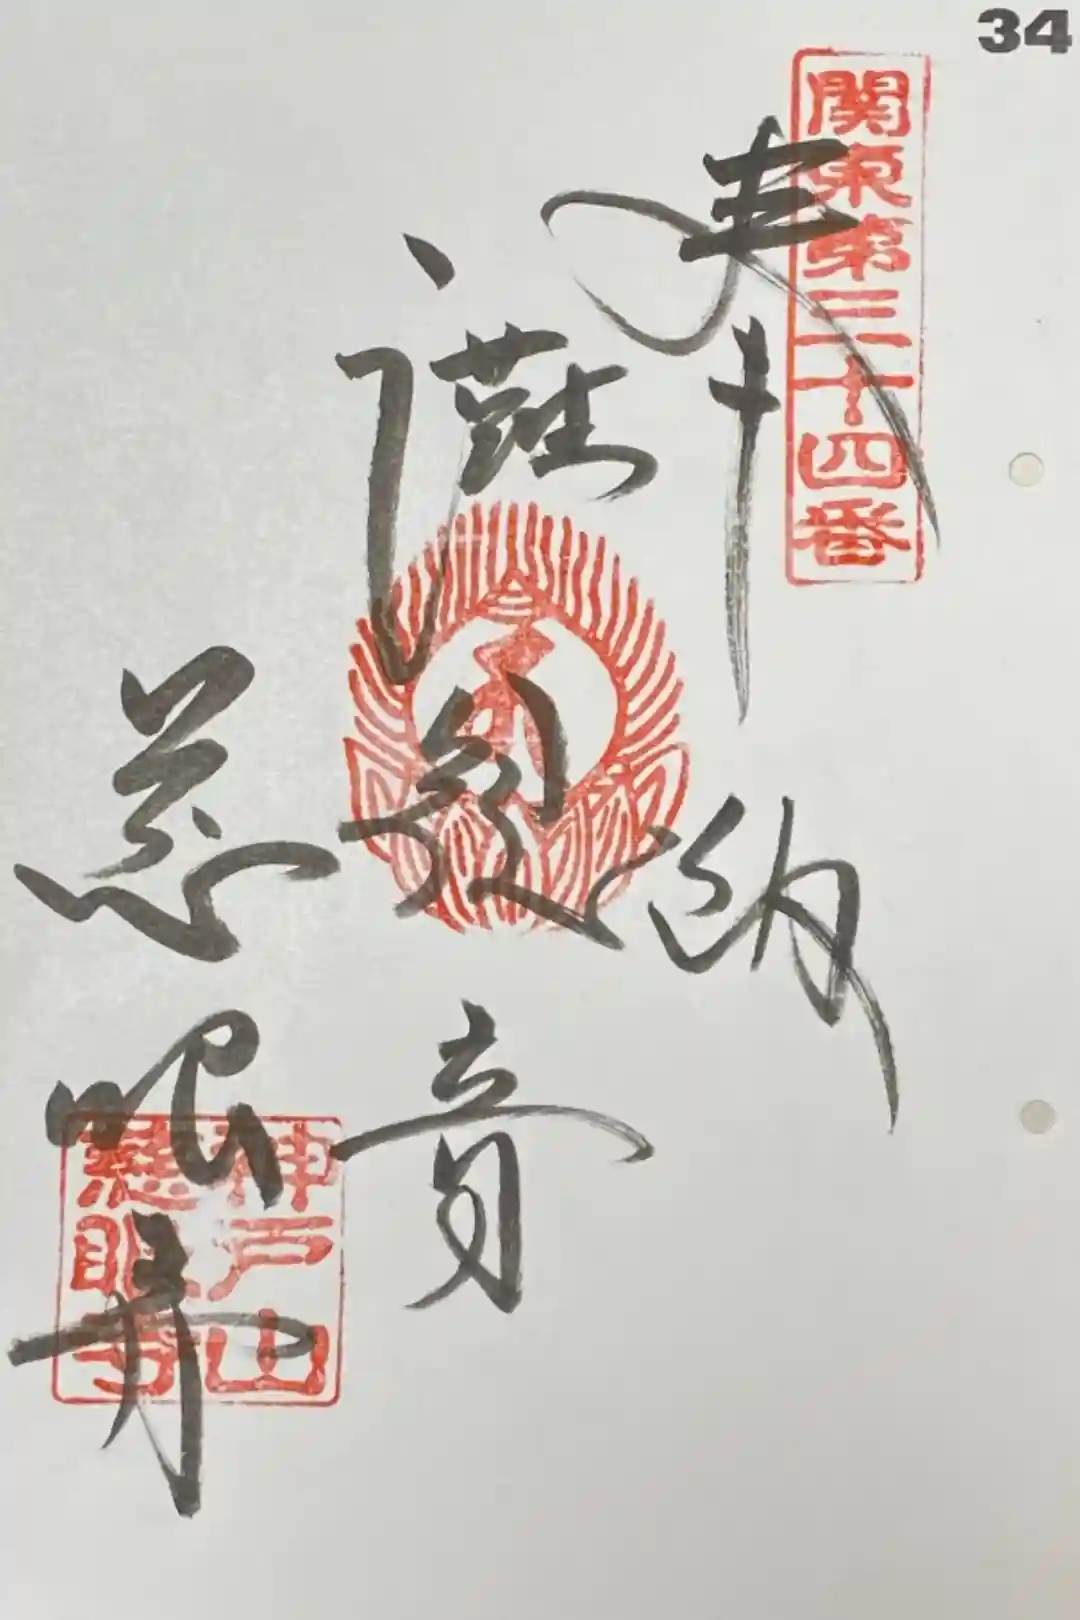 34
関東第三十四番
奉納
慈眼寺
神戸山
慈眼寺